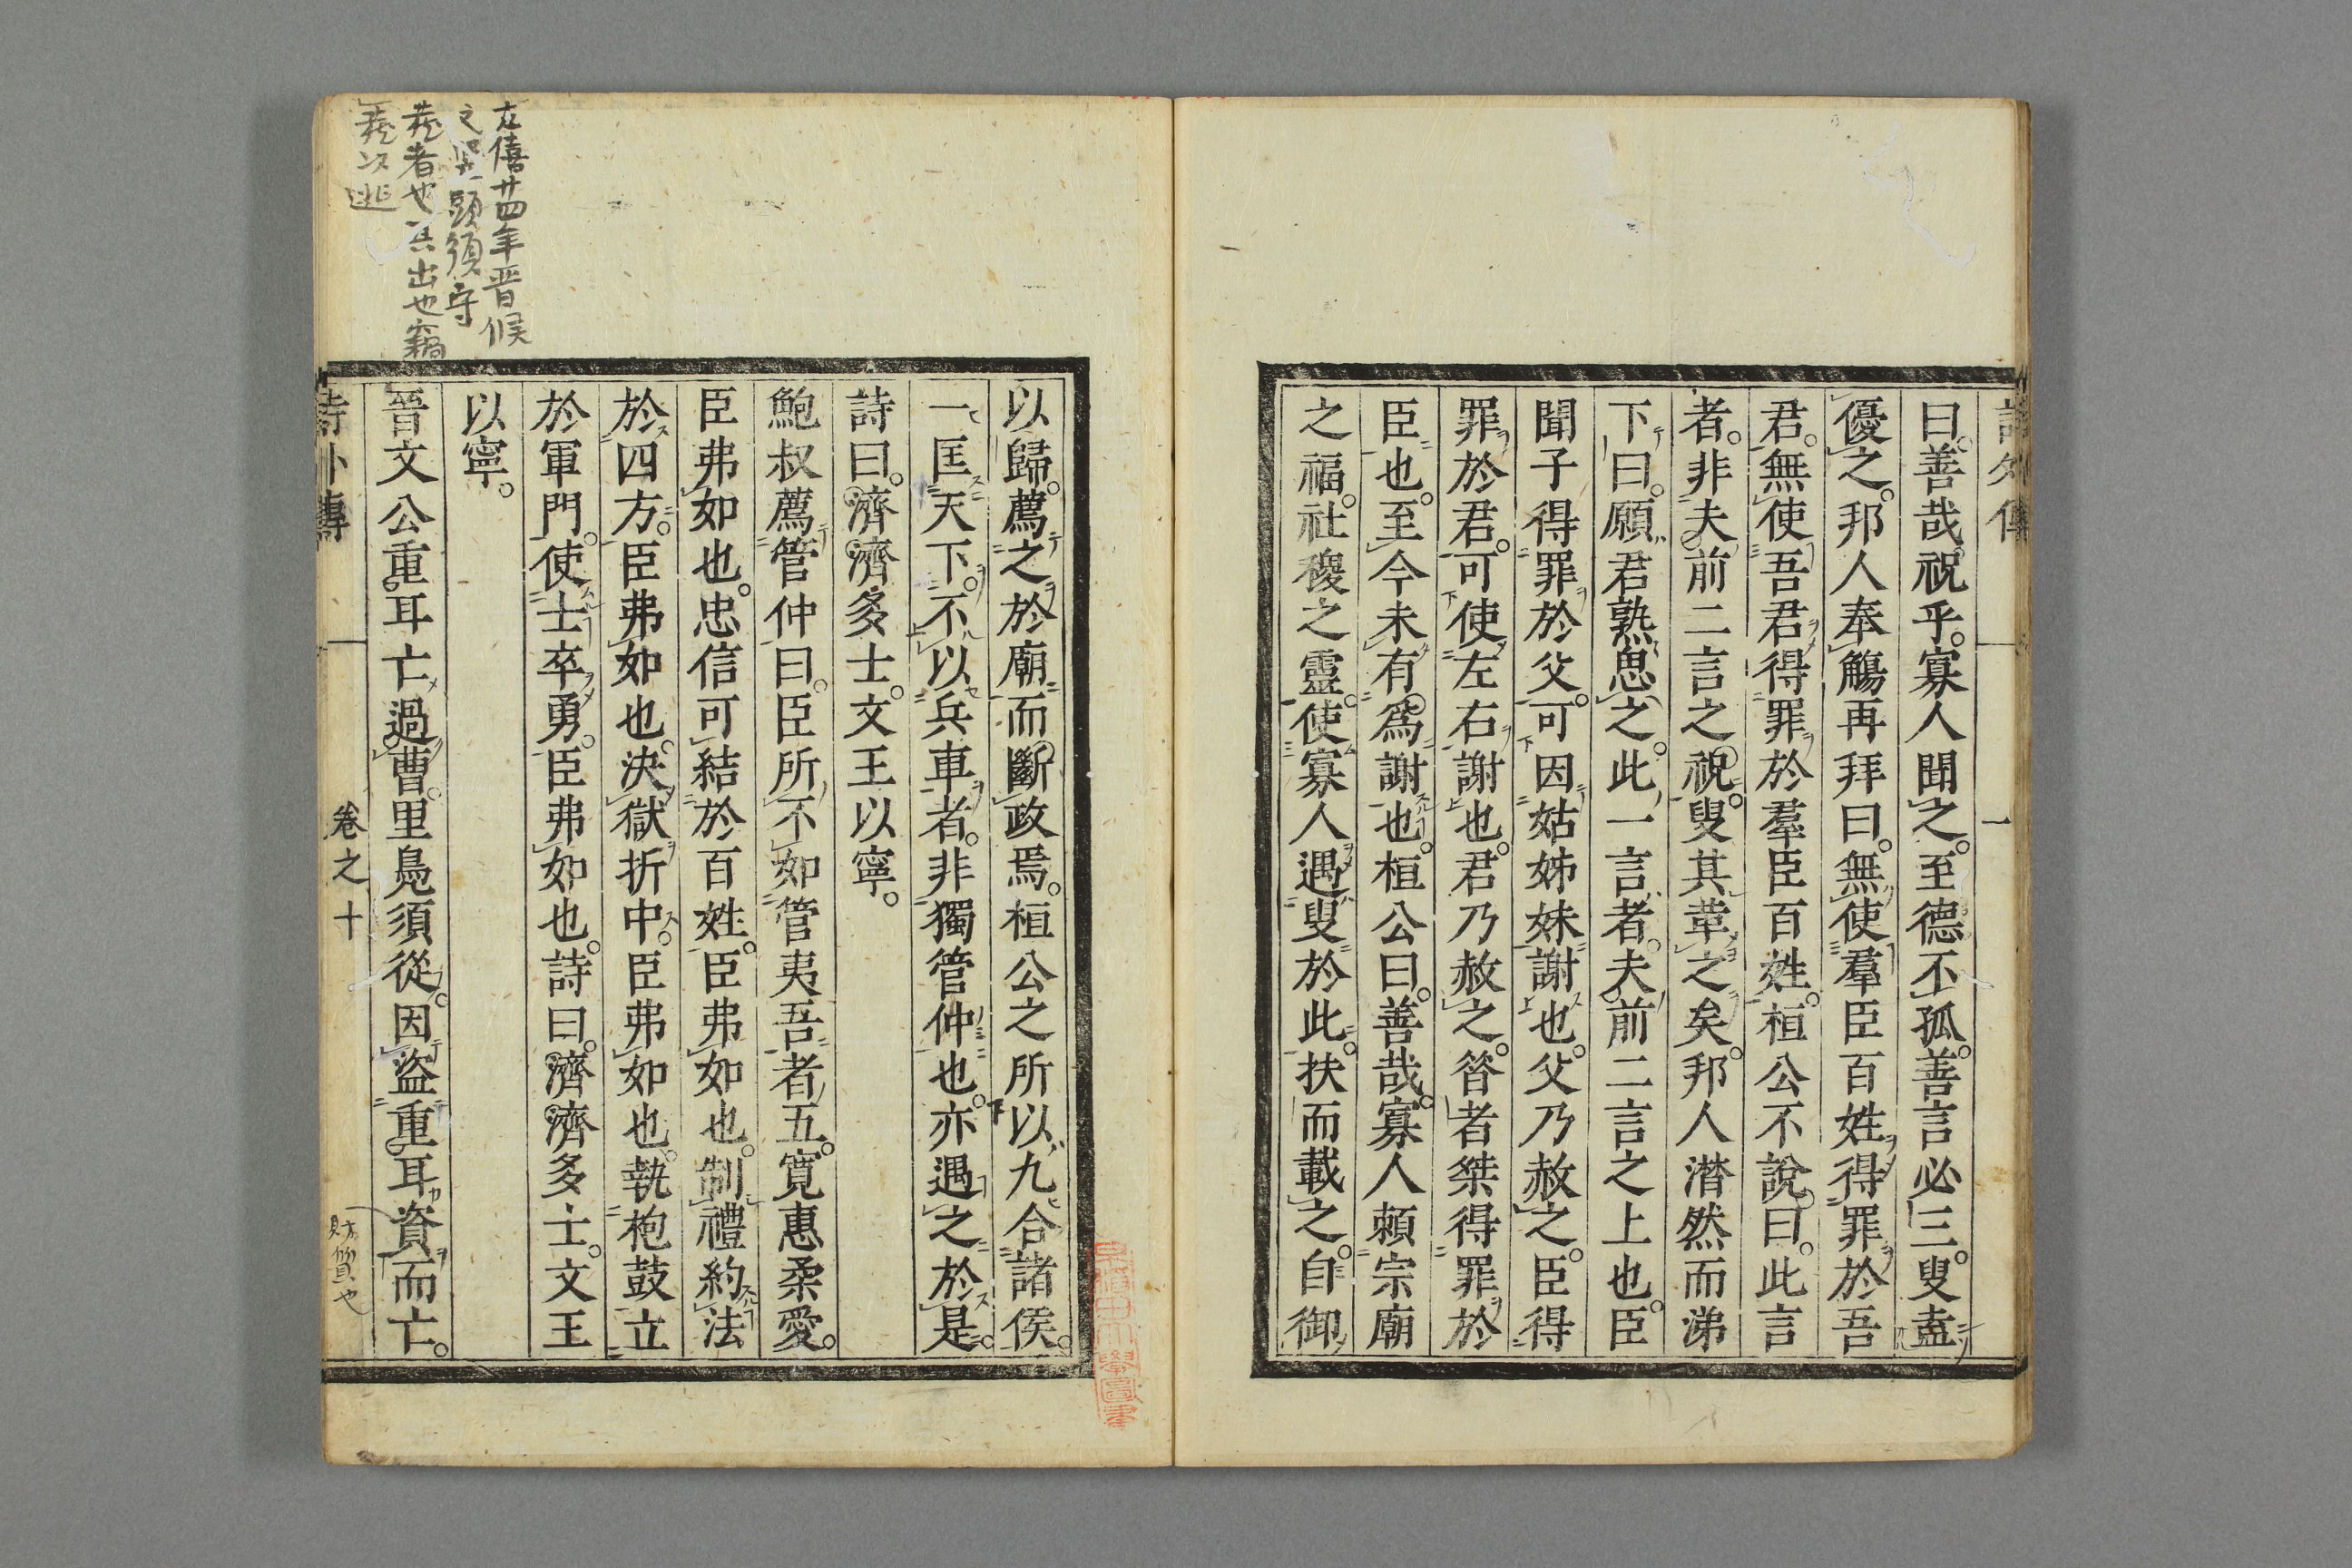 詩外傳
一
曰。善哉祝乎。寡人聞之。至德不孤。善言必三。叟盍
優之。邦人奉觴再拜曰。無使羣臣百姓得罪於吾
君。無使吾君得罪於羣臣百姓。桓公不說。曰。此言
者。非夫前二言之祝。叟其革之矣。邦人潸然而涕
下曰。願君熟思之。此一言者。夫前二言之上也。臣
聞子得罪於父。可因姑姊妹謝也。父乃赦之。臣得
罪於君。可使左右謝也。君乃赦之。昝者桀得罪於
臣也。至今未有爲謝也。桓公曰。善哉。寡人頼宗廟
之福。社稷之靈。使寡人遇叟於此。扶而載之。自御
以歸。薦之於廟而斷政焉。桓公之所以九合諸侯。
一匡天下。不以兵車者。非獨管仲也。亦遇之於是。
詩曰。濟濟多士。文王以寧。
鮑叔薦管仲曰。臣所不如管夷吾者五。寬惠柔愛。
臣弗如也。忠信可結於百姓。臣弗如也。制禮約法
於四方。臣弗如也。決獄折中。臣弗如也。執枹鼓立
於軍門。使士卒勇。臣弗如也。詩曰。濟濟多士。文王
以寧。
晉文公重耳亡過曹。里鳧須從。因盜重耳資而亡。
詩外傳
卷之十
財貨也
左僖廿四年晋候
之豎頭須守
藏者也其出也竊
藏以逃